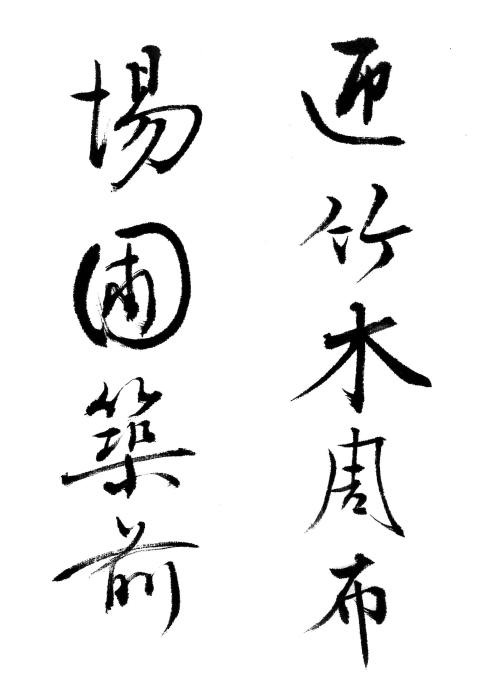 迊竹木周布
場圃築前